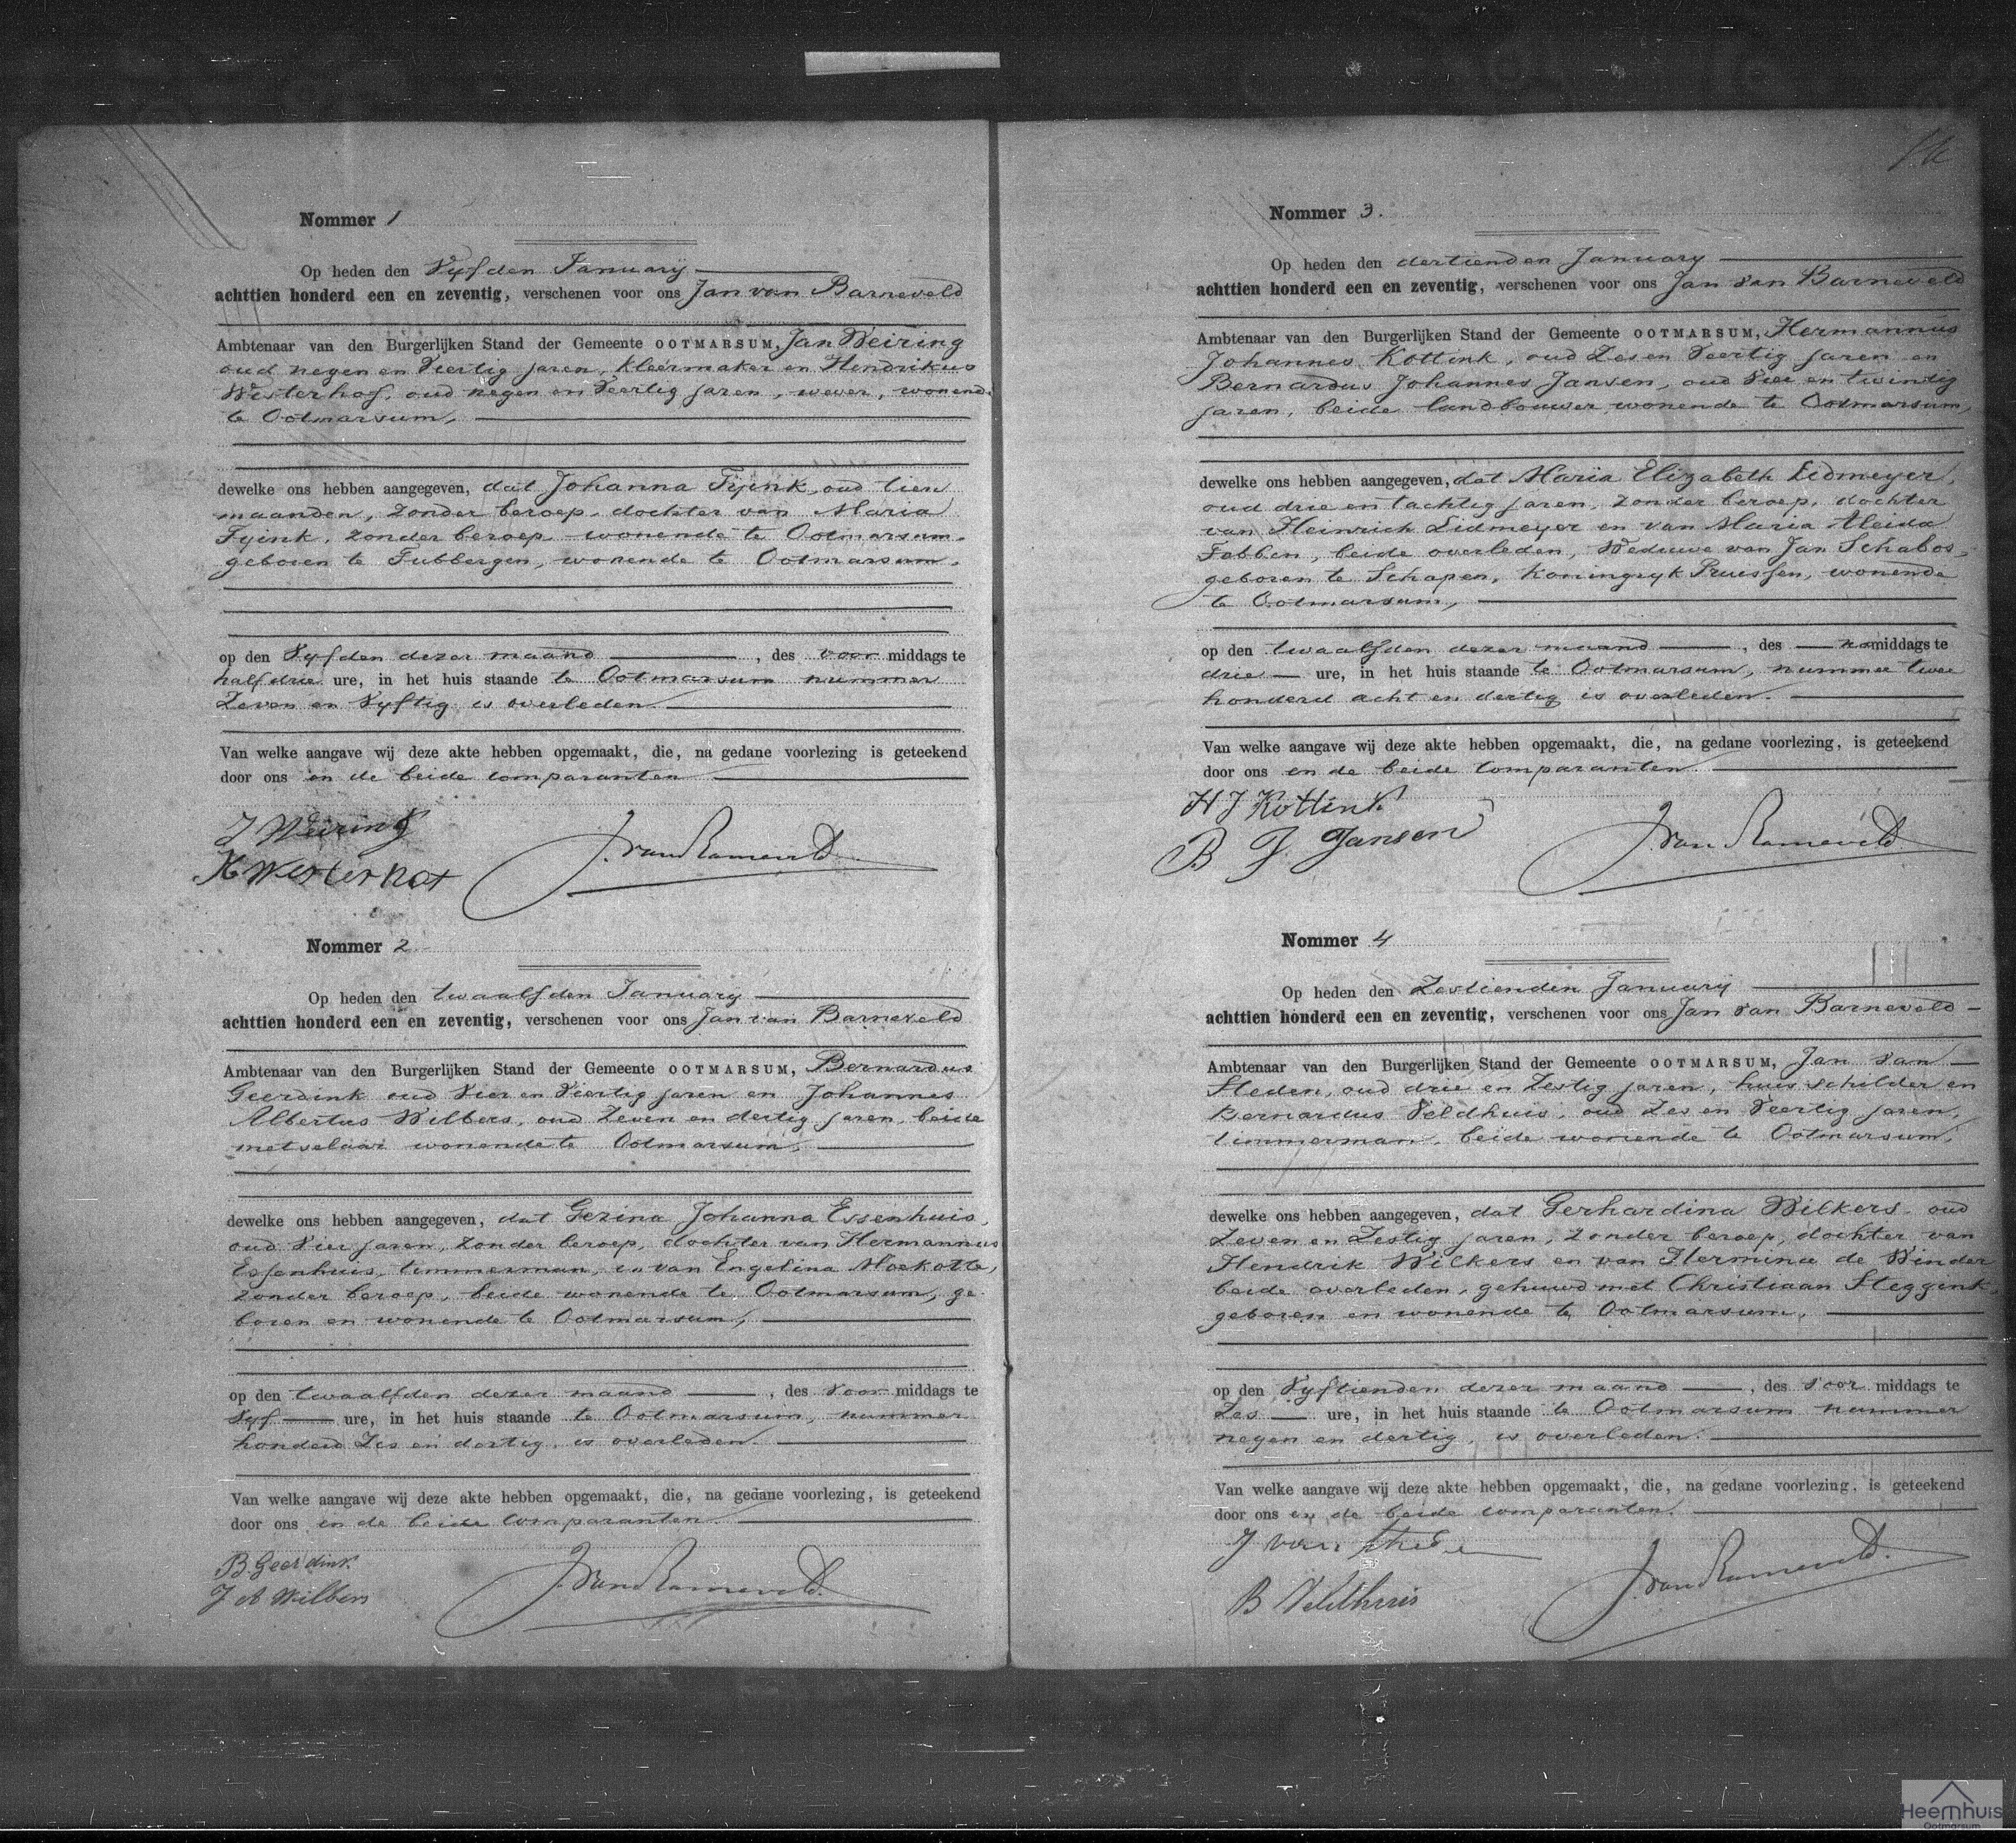 Nommer 1
Op heden den Vyfden January
achttien honderd een en zeventig, verschenen voor ons Jan van Barneveld
Ambtenaar van den Burgerlijken Stand der Gemeente OOTMARSUM, Jan Weiring
oud negen en Veertig jaren, Kleermaker en Hendrikus
Westerhof, oud negen en Veertig jaren, wever, wonend
te Ootmarsum,
dewelke ons hebben aangegeven, dat Johanna Fyink, oud tien
maanden, zonder beroep, dochter van Maria
Fyink, zonder beroep wonende te Ootmarsum,
geboren te Tubbergen, wonende te Ootmarsum,
op den Vyfden dezer maand, des voor middags te
half drie ure, in het huis staande te Ootmarsum nummer
Zeven en Vyftig is overleden
Van welke aangave wij deze akte hebben opgemaakt, die, na gedane voorlezing is geteekend
door ons en de beide comparanten
J Weiring
H Westerhof
J. van Barneveld
Nommer 2
Op heden den twaalfden January
achttien honderd een en zeventig, verschenen voor ons Jan van Barneveld
Ambtenaar van den Burgerlijken Stand der Gemeente OOTMARSUM, Bernardus
Geerdink oud Vier en Viertig jaren en Johannes
Albertus Wilbers, oud Zeven en dertig jaren, beide
metselaar wonende te Ootmarsum,
dewelke ons hebben aangegeven, dat Gezina Johanna Essenhuis,
oud Vier jaren, zonder beroep, dochter van Hermannus
Essenhuis, timmerman, en van Engelina Moekotte,
zonder beroep, beide wonende te Ootmarsum, ge
boren en wonende te Ootmarsum,
op den twaalfden dezer maand, des voor middags te
Vyf ure, in het huis staande te Ootmarsum, nummer
honderd Zes en dertig, is overleden.
Van welke aangave wij deze akte hebben opgemaakt, die, na gedane voorlezing, is geteekend
door ons en de beide comparanten.
B. Geerdink
J A Wilbers
J. van Barneveld.
Nommer 3.
Op heden den dertienden January
achttien honderd een en zeventig, verschenen voor ons Jan van Barneveld
Ambtenaar van den Burgerlijken Stand der Gemeente OOTMARSUM, Hermannus
Johannes Kottink, oud Zes en Veertig jaren en
Bernardus Johannes Jansen, oud Vier en twintig
jaren, beide landbouwer wonende te Ootmarsum,
dewelke ons hebben aangegeven, dat Maria Elizabeth Lidmeyer,
oud drie en tachtig jaren, zonder beroep, dochter
van Heinrich Lidmeyer en van Maria Aleida
Fabben, beide overleden, Weduwe van Jan Schabos,
geboren te Schapen, Koningryk Pruessen, wonende
te Ootmarsum,
op den twaalfden dezer maand, des namiddags te
drie ure, in het huis staande te Ootmarsum, nummer twee
honderd acht en dertig is overleden.
Van welke aangave wij deze akte hebben opgemaakt, die, na gedane voorlezing, is geteekend
door ons en de beide comparanten.
H J Kottink
B J Jansen
J. van Barneveld
Nommer 4
Op heden den Zestienden January
achttien honderd een en zeventig, verschenen voor ons Jan van Barneveld
Ambtenaar van den Burgerlijken Stand der Gemeente OOTMARSUM, Jan van
Steden, oud drie en Zestig jaren, huisschilder en
Bernardus Veldhuis, oud Zes en Veertig jaren,
timmerman, beide wonende te Ootmarsum,
dewelke ons hebben aangegeven, dat Gerhardina Wilkers oud
Zeven en Zestig jaren, zonder beroep, dochter van
Hendrik Wilkers en van Hermina de Winder
beide overleden, gehuwd met Christiaan Steggink,
geboren en wonende te Ootmarsum,
op den Vyftienden dezer maand, des voor middags te
Zes ure, in het huis staande te Ootmarsum nummer
negen en dertig, is overleden.
Van welke aangave wij deze akte hebben opgemaakt, die, na gedane voorlezing, is geteekend
door ons en de beide comparanten.
J van Steden
B Veldhuis
J. van Barneveld.
Heemhuis
Ootmarsum